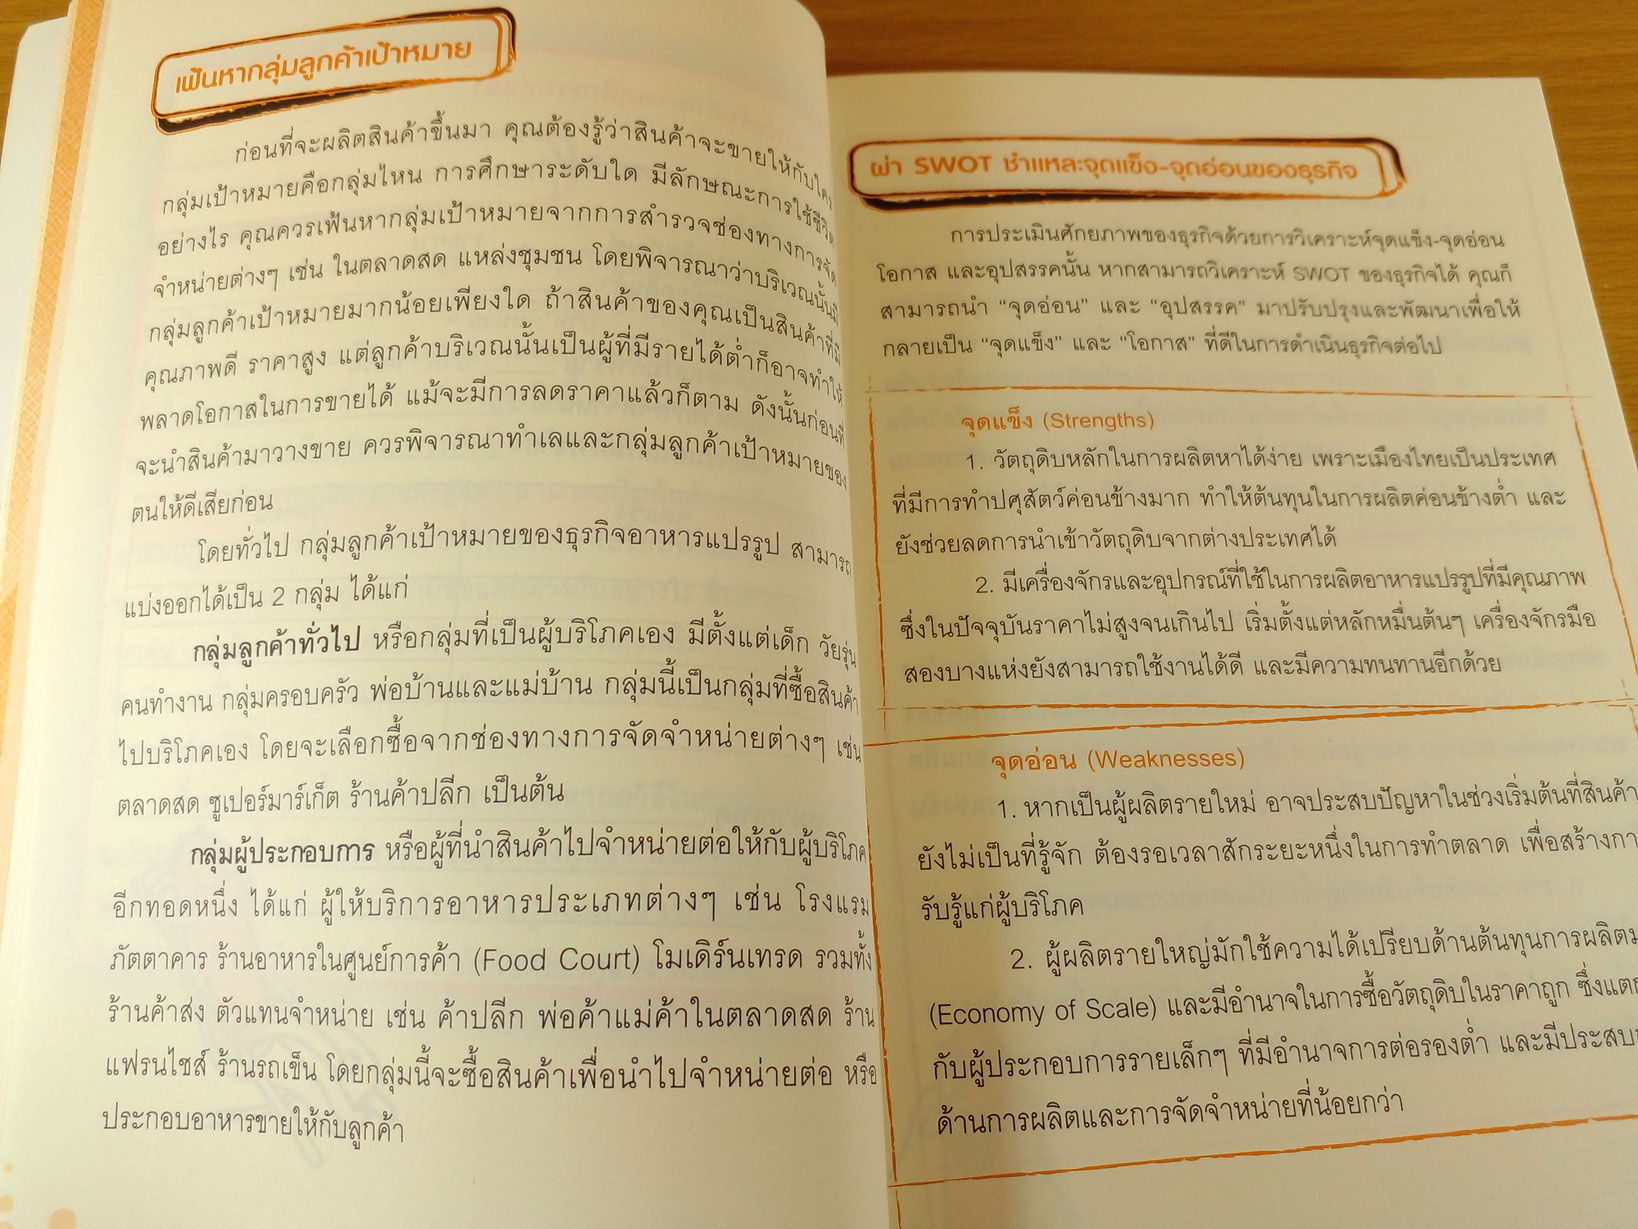 เฟ้นหากลุ่มลูกค้าเป้าหมาย
ก่อนที่จะผลิตสินค้าขึ้นมา คุณต้องรู้ว่าสินค้าจะขายให้กับใคร
กลุ่มเป้าหมายคือกลุ่มไหน การศึกษาระดับใด มีลักษณะการใช้ชีวิต
อย่างไร คุณควรเฟ้นหากลุ่มเป้าหมายจากการสำรวจช่องทางการจัด
จำหน่ายต่างๆ เช่น ในตลาดสด แหล่งชุมชน โดยพิจารณาว่าบริเวณนั้นมี
กลุ่มลูกค้าเป้าหมายมากน้อยเพียงใด ถ้าสินค้าของคุณเป็นสินค้าที่มี
คุณภาพดี ราคาสูง แต่ลูกค้าบริเวณนั้นเป็นผู้ที่มีรายได้ต่ำก็อาจทำให้
พลาดโอกาสในการขายได้ แม้จะมีการลดราคาแล้วก็ตาม ดังนั้นก่อนที่
จะนำสินค้ามาวางขาย ควรพิจารณาทำเลและกลุ่มลูกค้าเป้าหมายของ
ตนให้ดีเสียก่อน
โดยทั่วไป กลุ่มลูกค้าเป้าหมายของธุรกิจอาหารแปรรูป สามารถ
แบ่งออกได้เป็น 2 กลุ่ม ได้แก่
กลุ่มลูกค้าทั่วไป หรือกลุ่มที่เป็นผู้บริโภคเอง มีตั้งแต่เด็ก วัยรุ่น
คนทำงาน กลุ่มครอบครัว พ่อบ้านและแม่บ้าน กลุ่มนี้เป็นกลุ่มที่ซื้อสินค้า
ไปบริโภคเอง โดยจะเลือกซื้อจากช่องทางการจัดจำหน่ายต่างๆ เช่น
ตลาดสด ซูเปอร์มาร์เก็ต ร้านค้าปลีก เป็นต้น
กลุ่มผู้ประกอบการ หรือผู้ที่นำสินค้าไปจำหน่ายต่อให้กับผู้บริโภค
อีกทอดหนึ่ง ได้แก่ ผู้ให้บริการอาหารประเภทต่างๆ เช่น โรงแรม
ภัตตาคาร ร้านอาหารในศูนย์การค้า (Food Court) โมเดิร์นเทรด รวมทั้ง
ร้านค้าส่ง ตัวแทนจำหน่าย เช่น ค้าปลีก พ่อค้าแม่ค้าในตลาดสด ร้าน
แฟรนไชส์ ร้านรถเข็น โดยกลุ่มนี้จะซื้อสินค้าเพื่อนำไปจำหน่ายต่อ หรือ
ประกอบอาหารขายให้กับลูกค้า
ผ่า SWOT ชำแหละจุดแข็ง-จุดอ่อนของธุรกิจ
การประเมินศักยภาพของธุรกิจด้วยการวิเคราะห์จุดแข็ง-จุดอ่อน
โอกาส และอุปสรรคนั้น หากสามารถวิเคราะห์ SWOT ของธุรกิจได้ คุณก็
สามารถนำ “จุดอ่อน” และ “อุปสรรค” มาปรับปรุงและพัฒนาเพื่อให้
กลายเป็น “จุดแข็ง” และ “โอกาส” ที่ดีในการดำเนินธุรกิจต่อไป
จุดแข็ง (Strengths)
1. วัตถุดิบหลักในการผลิตหาได้ง่าย เพราะเมืองไทยเป็นประเทศ
ที่มีการทำปศุสัตว์ค่อนข้างมาก ทำให้ต้นทุนในการผลิตค่อนข้างต่ำ และ
ยังช่วยลดการนำเข้าวัตถุดิบจากต่างประเทศได้
2. มีเครื่องจักรและอุปกรณ์ที่ใช้ในการผลิตอาหารแปรรูปที่มีคุณภาพ
ซึ่งในปัจจุบันราคาไม่สูงจนเกินไป เริ่มตั้งแต่หลักหมื่นต้นๆ เครื่องจักรมือ
สองบางแห่งยังสามารถใช้งานได้ดี และมีความทนทานอีกด้วย
จุดอ่อน (Weaknesses)
1. หากเป็นผู้ผลิตรายใหม่ อาจประสบปัญหาในช่วงเริ่มต้นที่สินค้า
ยังไม่เป็นที่รู้จัก ต้องรอเวลาสักระยะหนึ่งในการทำตลาด เพื่อสร้างกา
รับรู้แก่ผู้บริโภค
2. ผู้ผลิตรายใหญ่มักใช้ความได้เปรียบด้านต้นทุนการผลิต
(Economy of Scale) และมีอำนาจในการซื้อวัตถุดิบในราคาถูก ซึ่งแตก
กับผู้ประกอบการรายเล็กๆ ที่มีอำนาจการต่อรองต่ำ และมีประสบ
ด้านการผลิตและการจัดจำหน่ายที่น้อยกว่า